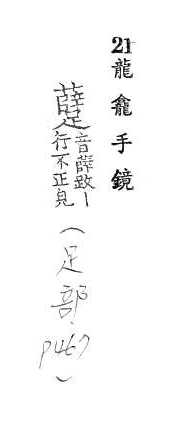 21 龍龕手鏡
躠音薛跋丨
行不正皃
（足部，P467）